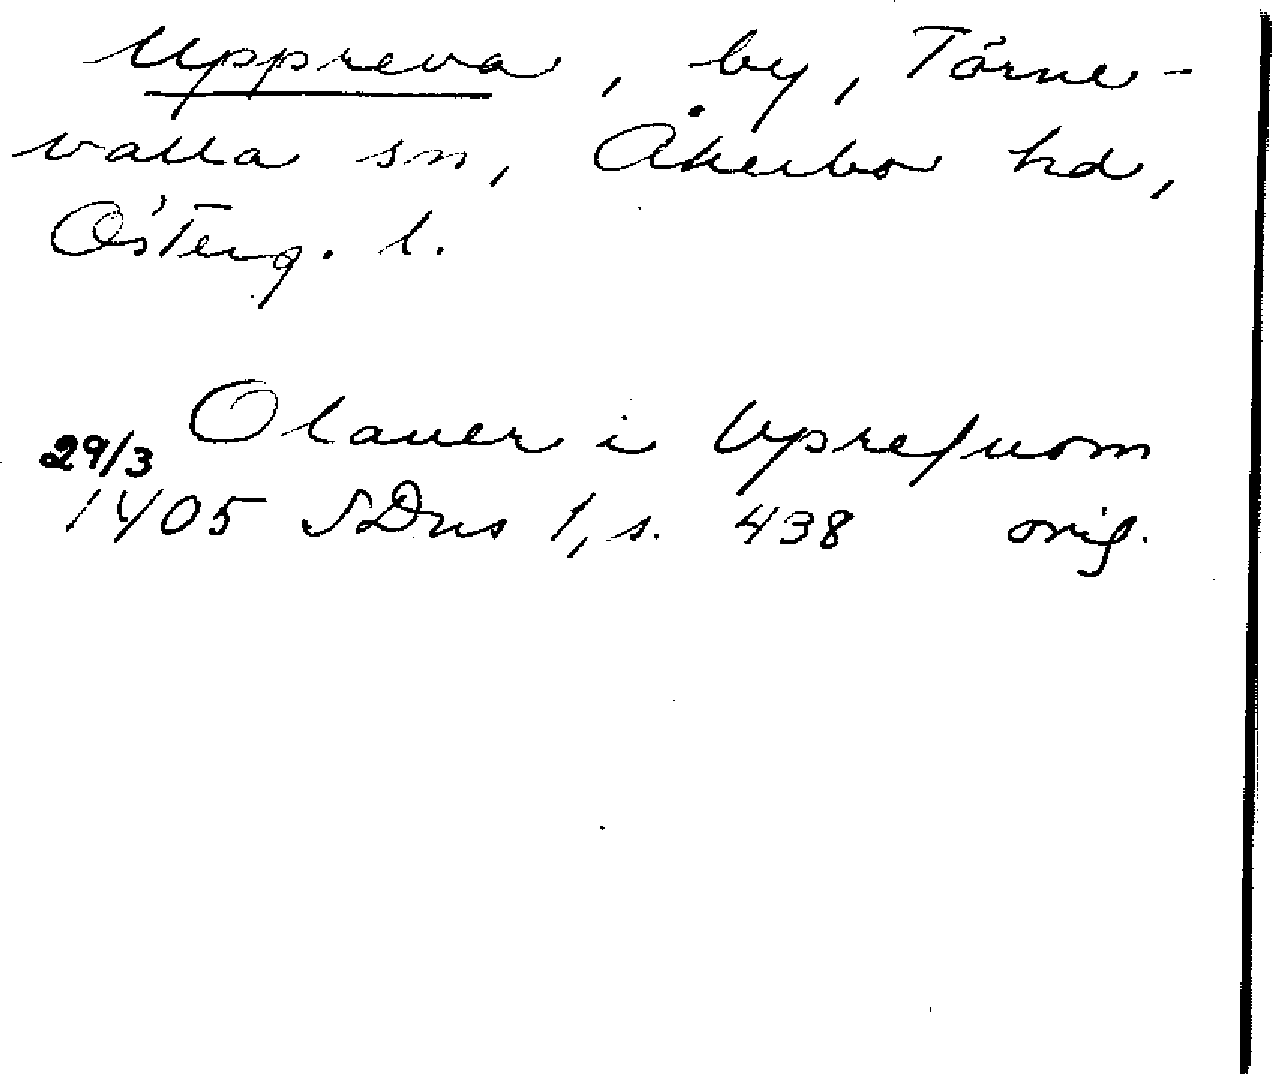 Uppreva, by, Törne-
valla sn, Åkerbo hd,
Österg. l.
Olauer i Vprefuom
29/3
1405 SDns 1, s. 438 orig.